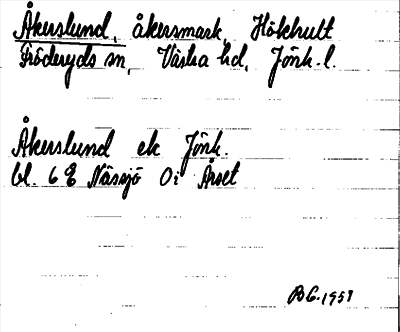 Åkerslund, åkersmark, Hökhult
Fröderyds sn, Västra hd, Jönk. l.
Åkerslund ek Jönk.
bl. 6 E Nässjö Oi Året
1951